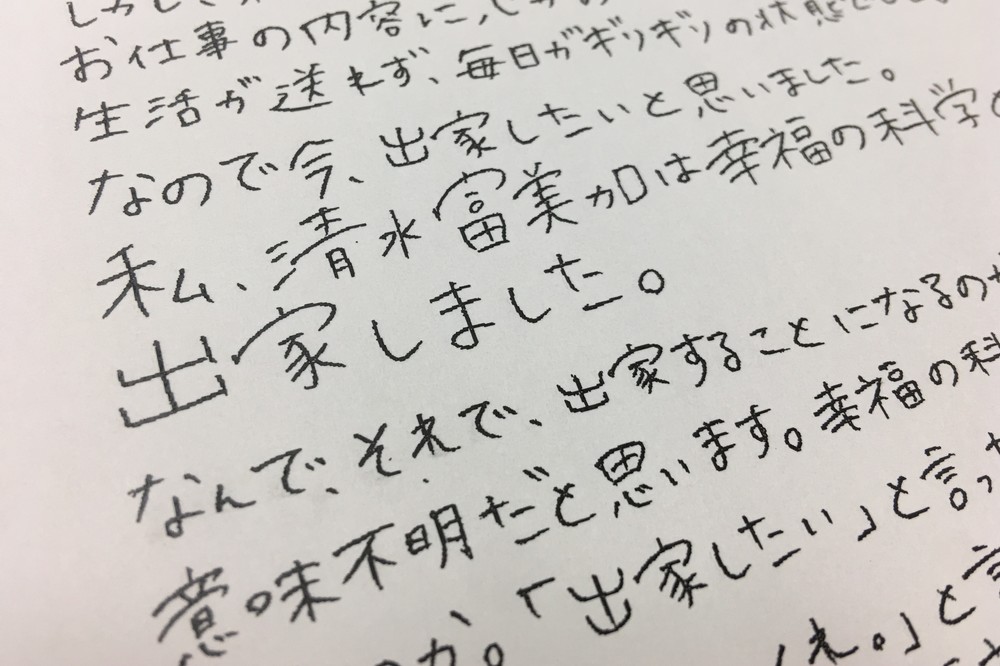 お仕事の内容に、
生活が送れず、毎日がギリギリの状態で
なので今、出家したいと思いました。
私、清水富美加は幸福の科学
出家しました。
なんで、それで、出家することになるのか
意味不明だと思います。幸福の科
か。「出家したい」と言っ
ね。」と言